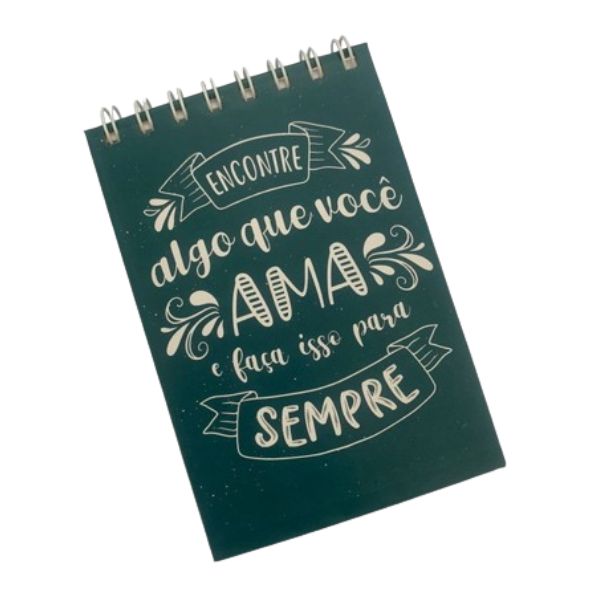 ENCONTRE
algo que você
AMA
e faça isso para
SEMPRE